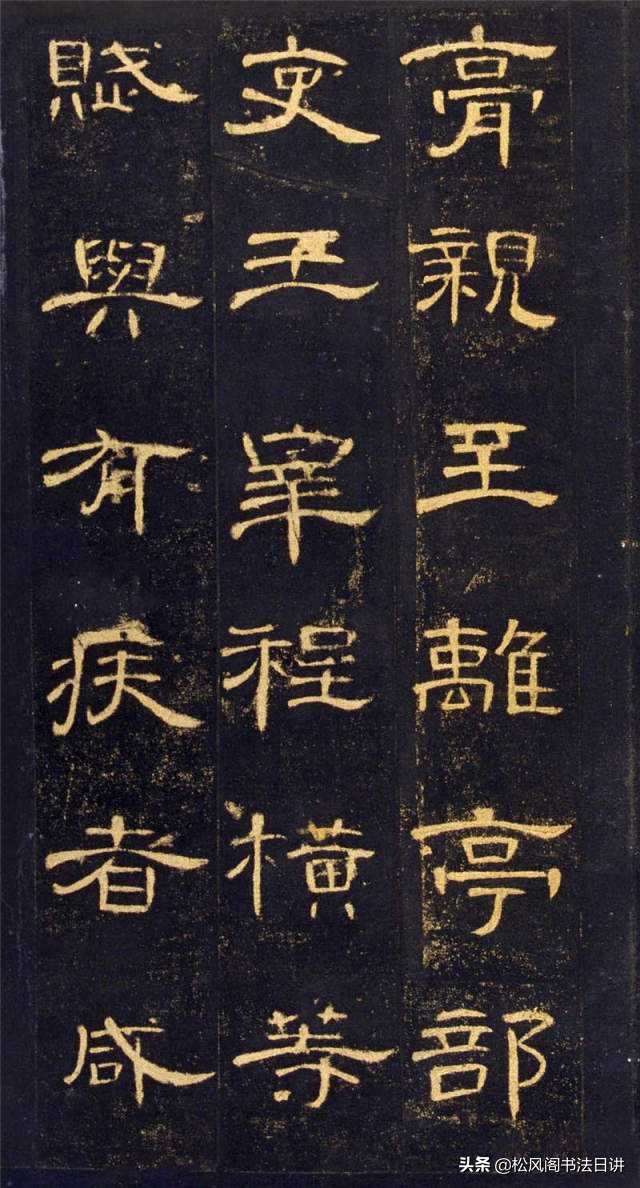 膏親至離亭部
吏王宰程橫等
賦與有疾者咸
头条 @松风阁书法日讲